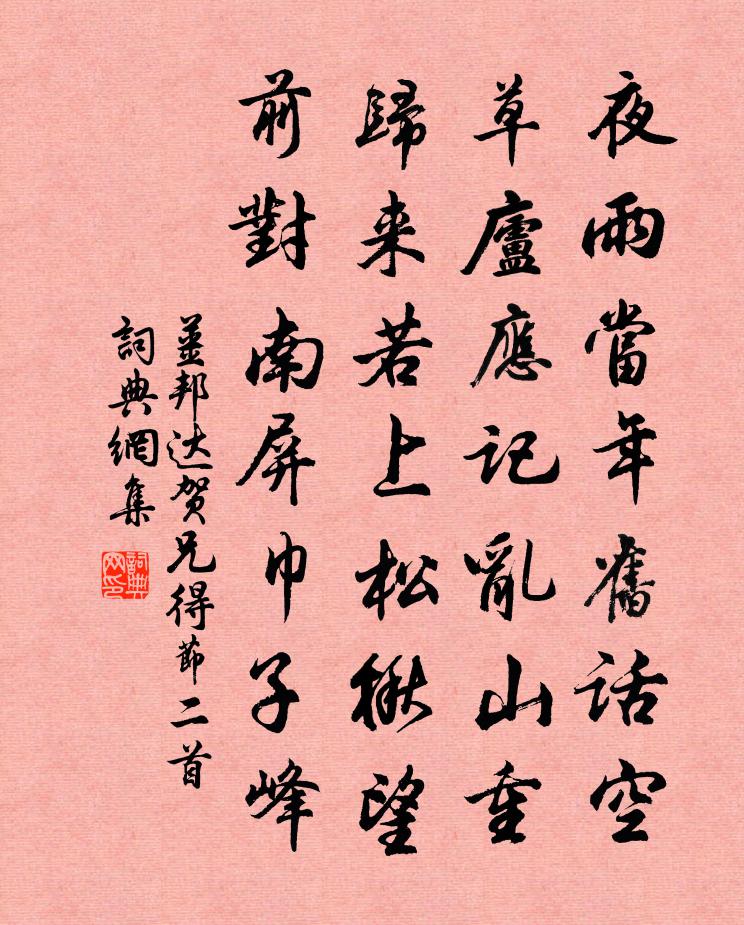 夜雨當年舊話空
草廬應記亂山重
歸来若上松楸望
前對南屏巾子峰
薑邦达贺兄得節二首
詞典網集
詞典网印